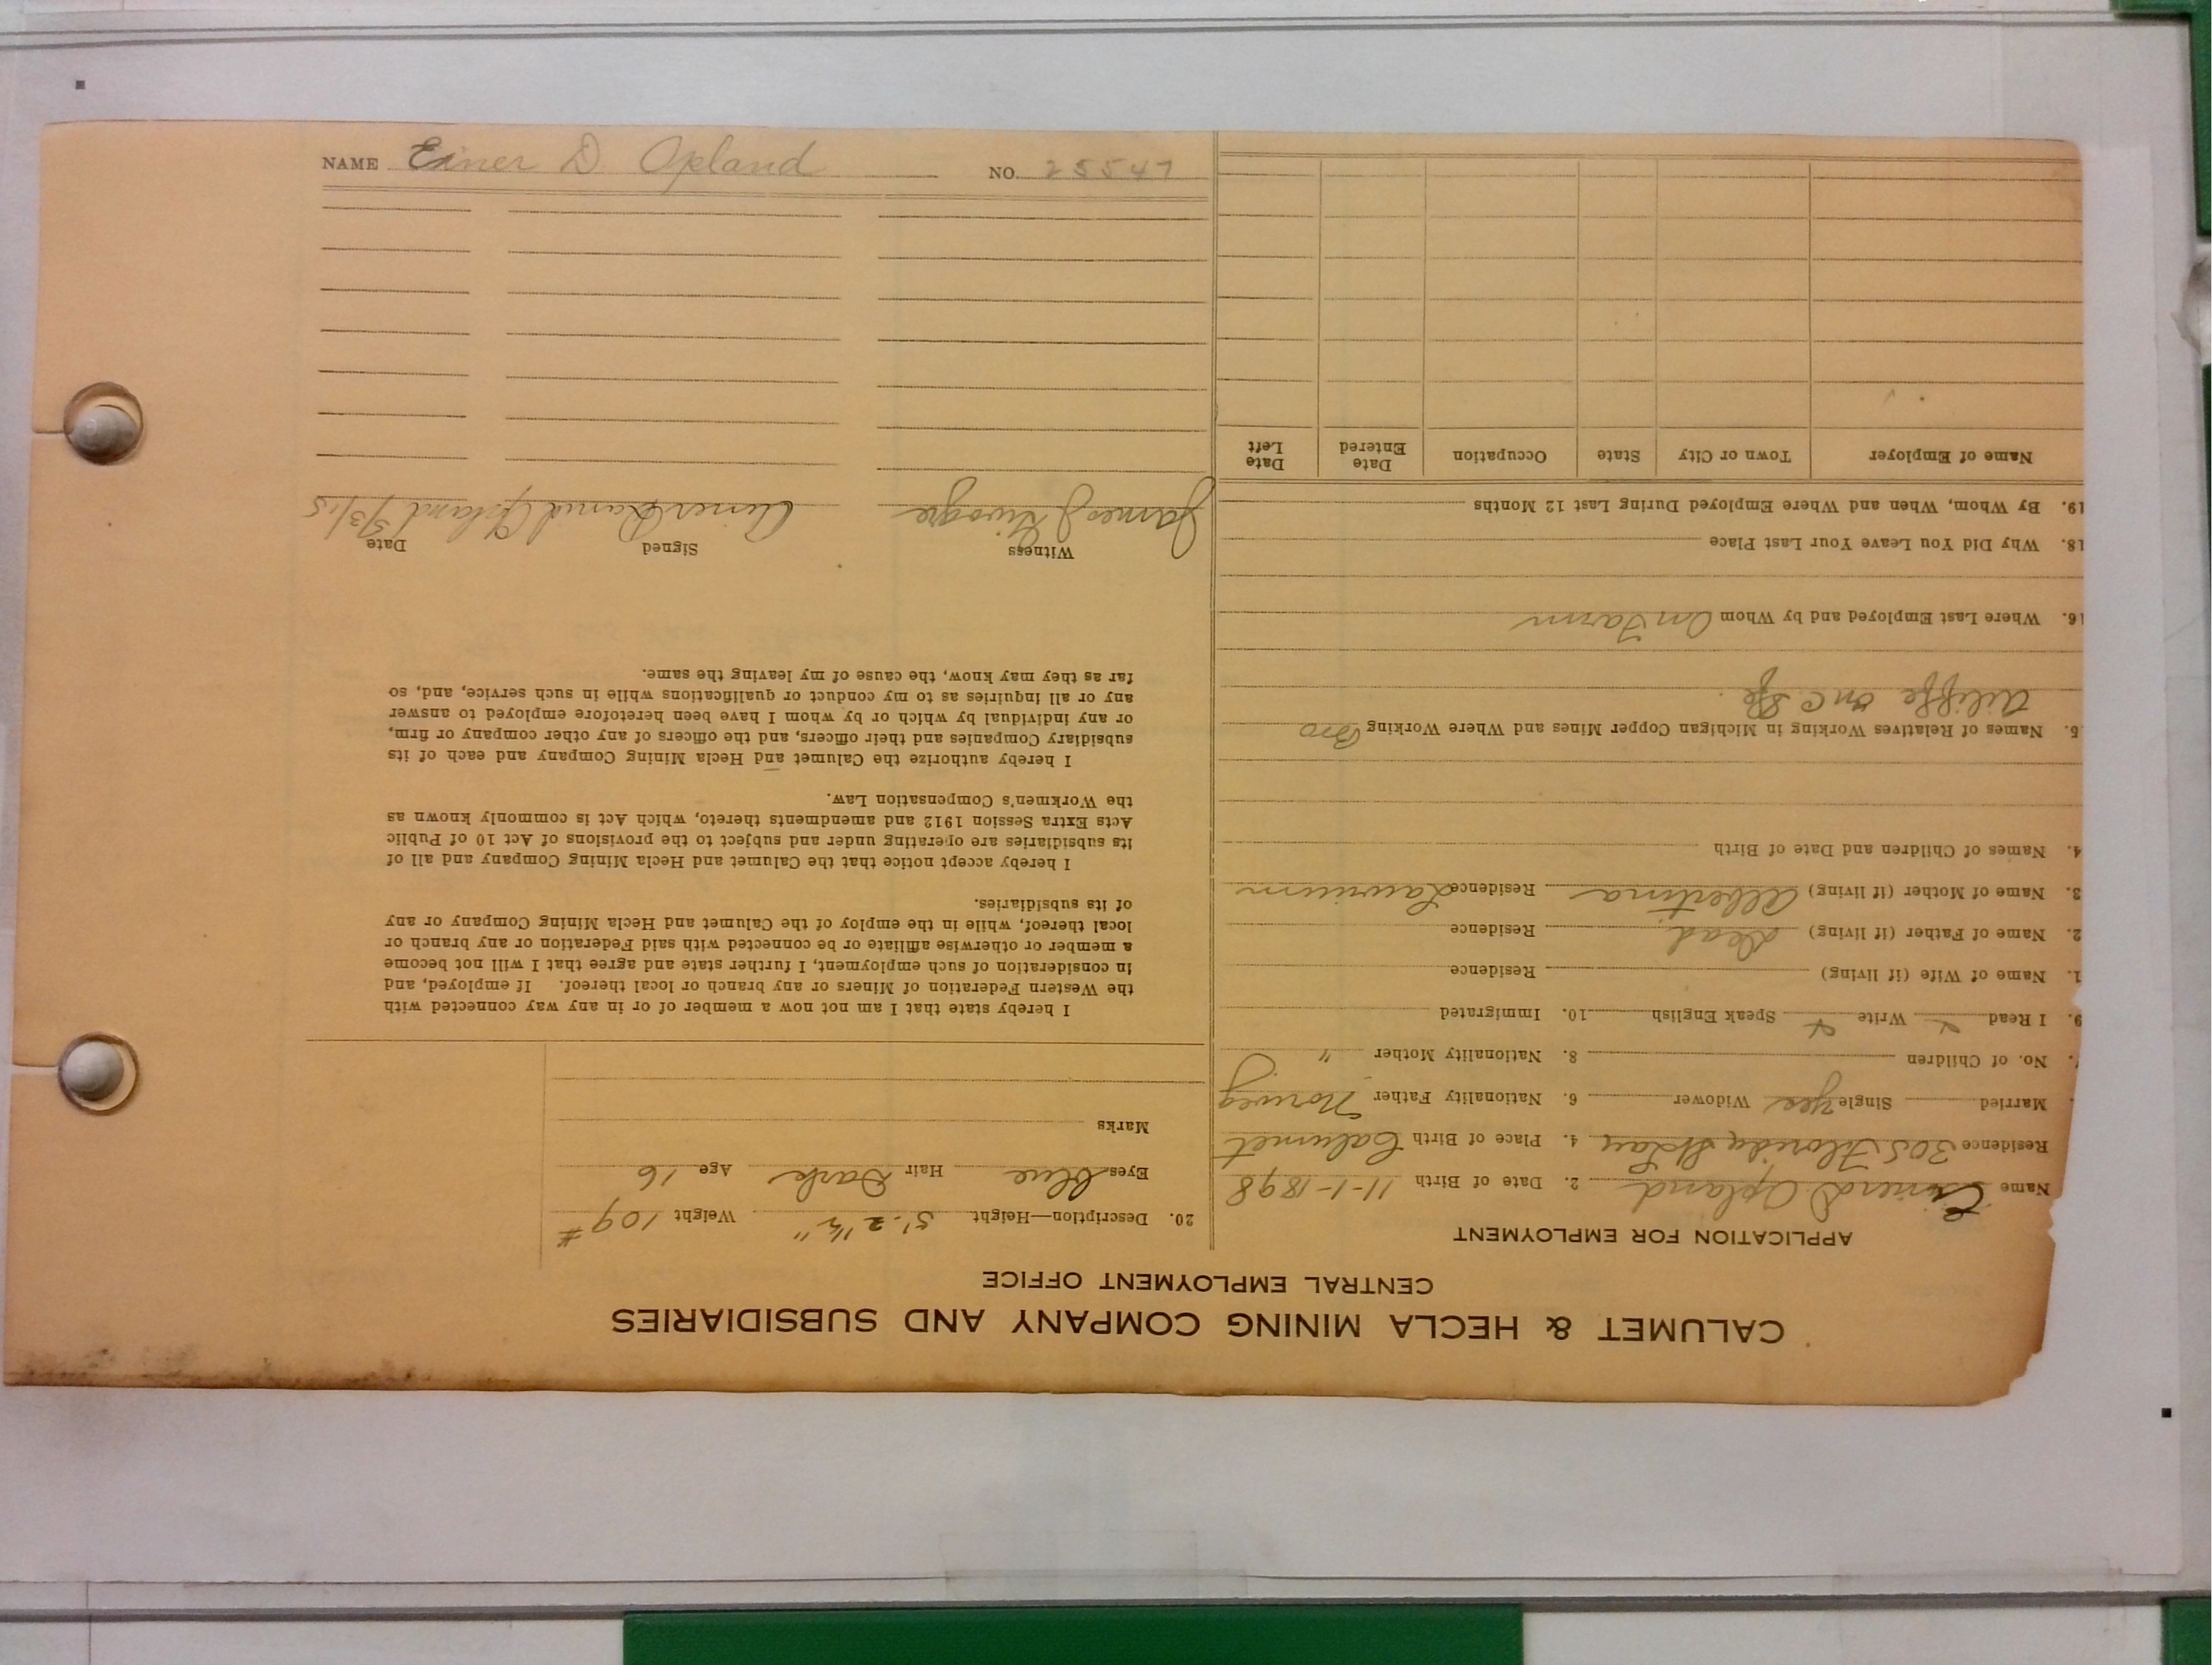 CALUMET & HECLA MINING COMPANY AND SUBSIDIARIES
CENTRAL EMPLOYMENT OFFICE
APPLICATION FOR EMPLOYMENT
Name Einer D Opland 2. Date of Birth 11-1-1898
Residence 305 Florida St Lau 4. Place of Birth Calumet
Married Single yes Widower 6. Nationality Father Norweg
No. of Children 8. Nationality Mother "
9. I Read Write Speak English 10. Immigrated
1. Name of Wife (if living) Residence
2. Name of Father (if living) Dead Residence
3. Name of Mother (if living) Albertina Residence Laurium
4. Names of Children and Date of Birth
5. Names of Relatives Working in Michigan Copper Mines and Where Working Bro
16. Where Last Employed and by Whom On Farm
18. Why Did You Leave Your Last Place
19. By Whom, When and Where Employed During Last 12 Months
Name of Employer Town or City State Occupation Date Entered Date Left
20. Description—Height 5'-2 1/2" Weight 109 #
Eyes blue Hair Dark Age 16
Marks
I hereby state that I am not now a member of or in any way connected with
the Western Federation of Miners or any branch or local thereof. If employed, and
in consideration of such employment, I further state and agree that I will not become
a member or otherwise affiliate or be connected with said Federation or any branch or
local thereof, while in the employ of the Calumet and Hecla Mining Company or any
of its subsidiaries.
I hereby accept notice that the Calumet and Hecla Mining Company and all of
its subsidiaries are operating under and subject to the provisions of Act 10 of Public
Acts Extra Session 1912 and amendments thereto, which Act is commonly known as
the Workmen's Compensation Law.
I hereby authorize the Calumet and Hecla Mining Company and each of its
subsidiary Companies and their officers, and the officers of any other company or firm,
or any individual by which or by whom I have been heretofore employed to answer
any or all inquiries as to my conduct or qualifications while in such service, and, so
far as they may know, the cause of my leaving the same.
Witness Signed Date
James J Einer Daniel Opland 5/3/15
NAME Einer D. Opland NO. 25547